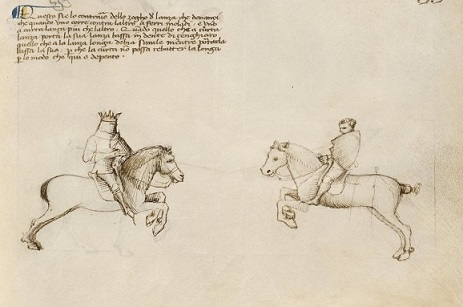 Questo si e lo contrario dello zogho d lanza che denanzi
che quando uno corre contra laltro a ferri moladi e uno
a curta lanza piu che laltro. Quando quello che a curta
lanza porta la sua lanza bassa in dente di zenghiaro
quello che a la lanza longa debia simile mentre portarla
bassa la sua. per che la curta no possa rebatter la longa
p lo modo che qui e depento.